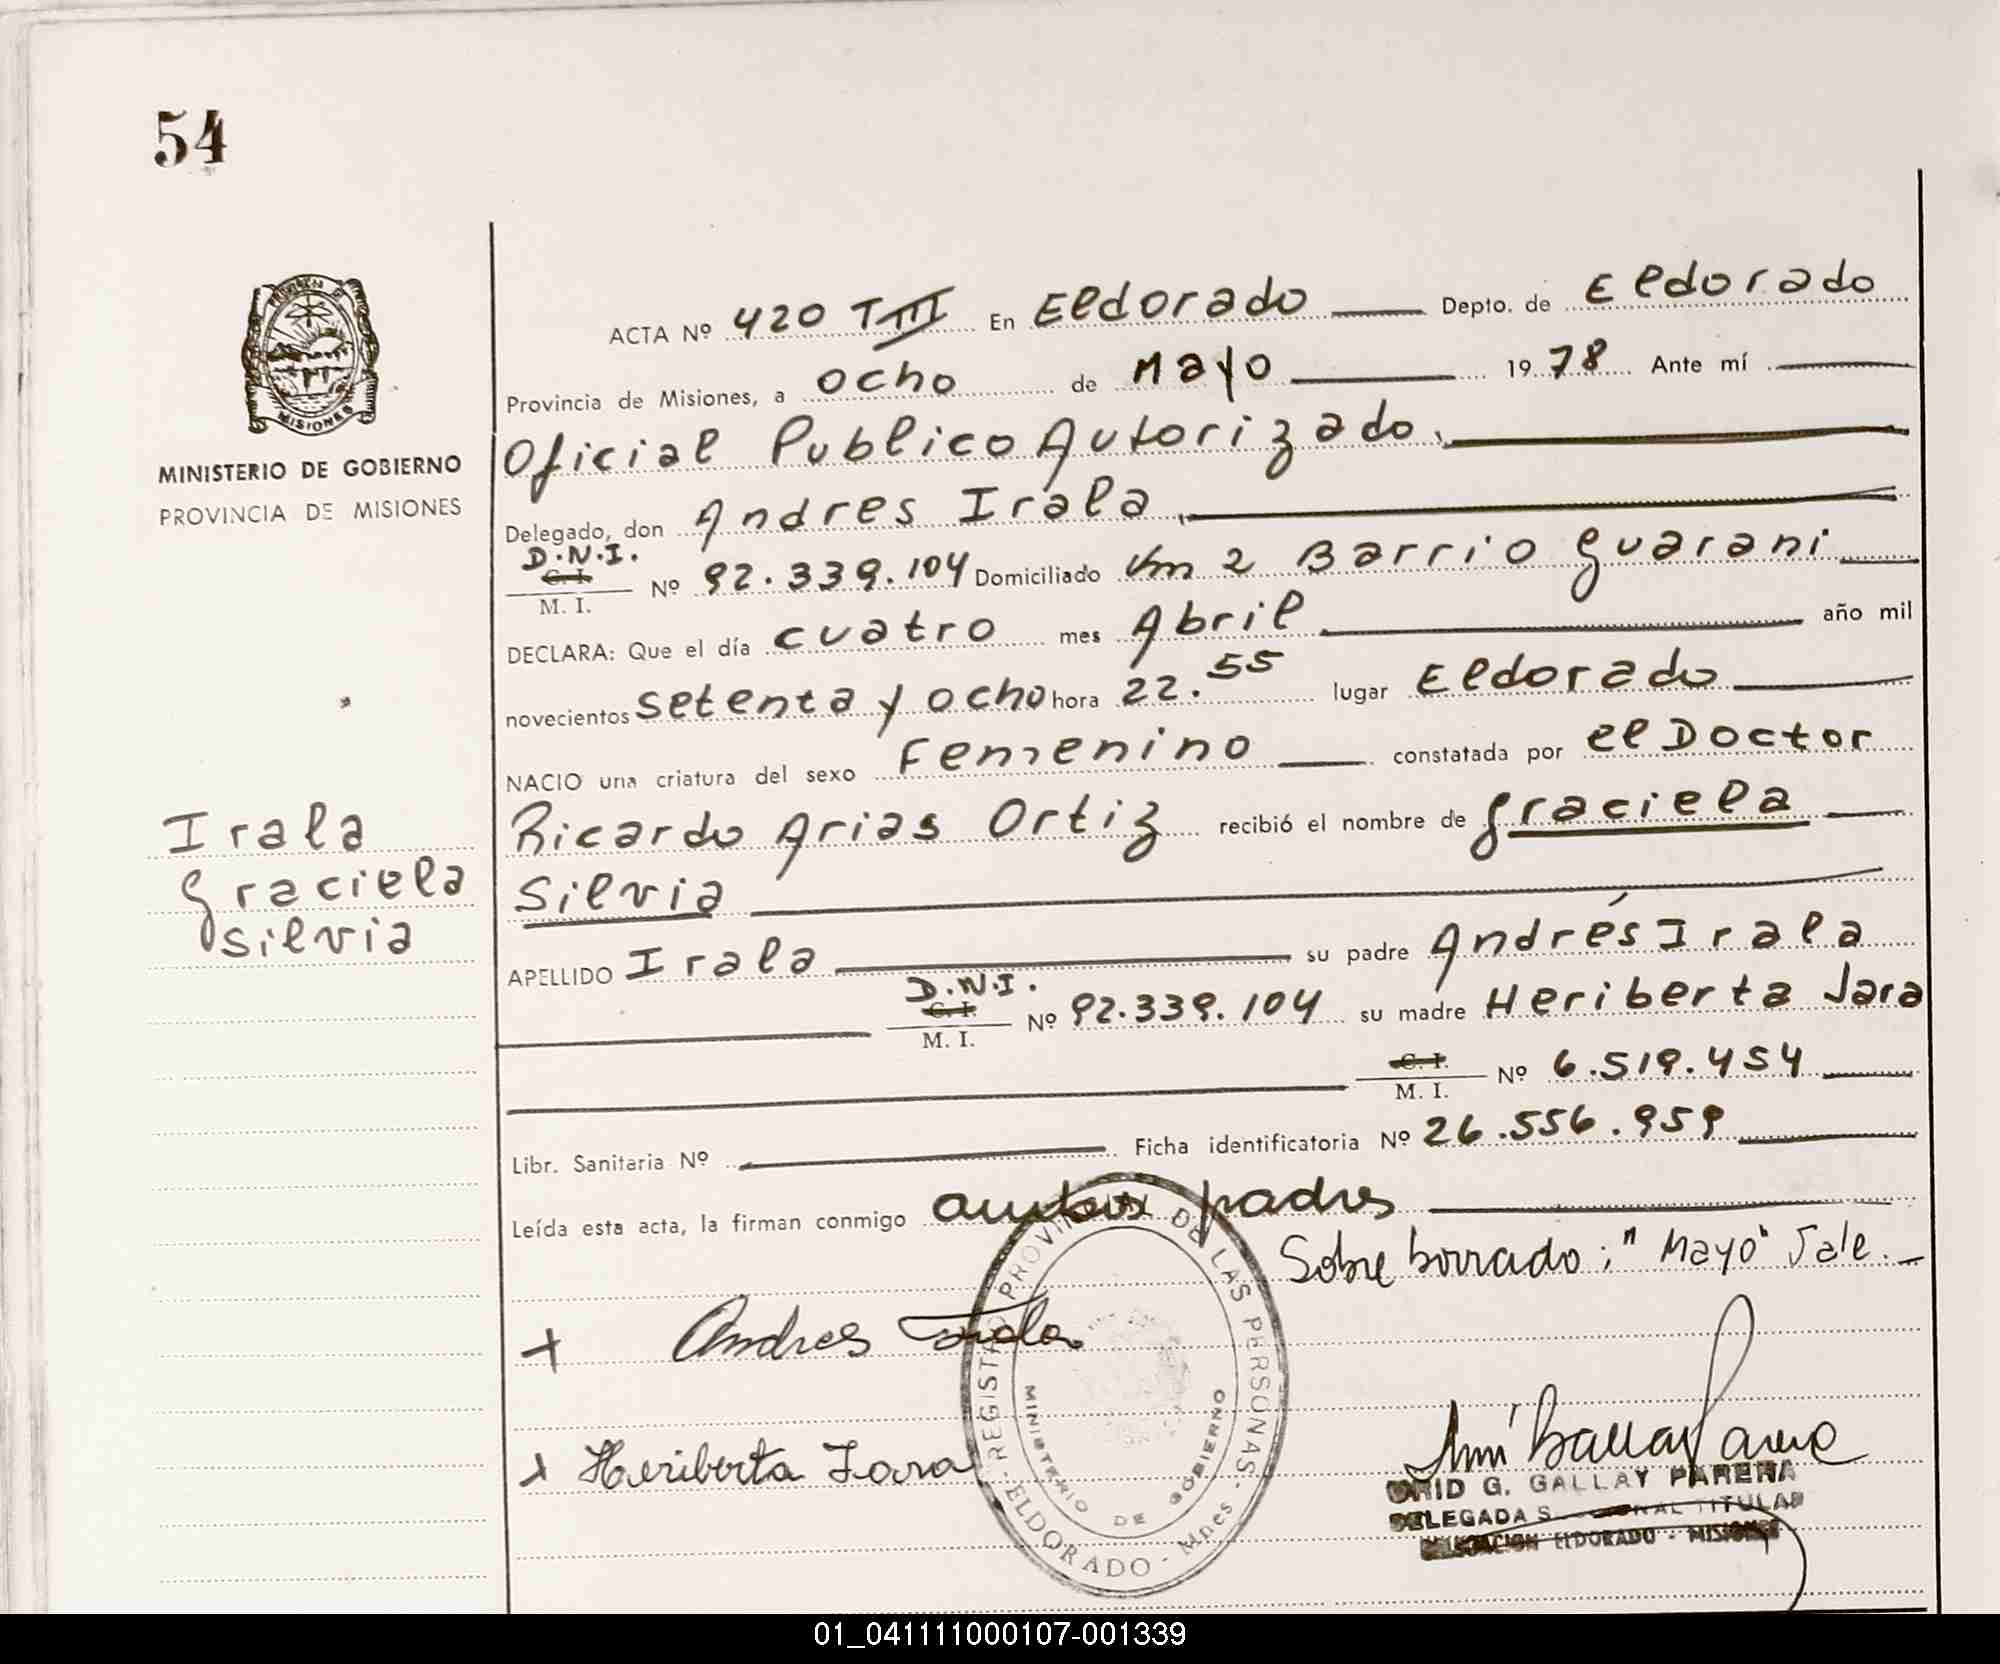 54
PROVINCIA DE
MISIONES
MINISTERIO DE GOBIERNO
PROVINCIA DE MISIONES
ACTA Nº 420 TIII En Eldorado Depto. de Eldorado
Provincia de Misiones, a ocho de Mayo 1978 Ante mí
Oficial Publico Autorizado.
Delegado, don Andres Irala
D.N.I.
C. I.
M. I. Nº 92.339.104 Domiciliado Km 2 Barrio Guarani
DECLARA: Que el día cuatro mes Abril año mil
novecientos setenta y ocho hora 22.55 lugar Eldorado
NACIO una criatura del sexo Femenino constatada por el Doctor
Ricardo Arias Ortiz recibió el nombre de Graciela
Silvia
Irala
Graciela
Silvia
APELLIDO Irala su padre Andrés Irala
D.N.I.
C. I.
M. I. Nº 92.339.104 su madre Heriberta Jara
C. I.
M. I. Nº 6.519.454
Libr. Sanitaria Nº Ficha identificatoria Nº 26.556.959
Leída esta acta, la firman conmigo ambos padres
Sobre borrado: "Mayo" Vale.
+ Andres Irala
+ Heriberta Jara
REGISTRO PROVINCIAL DE LAS PERSONAS
MINISTERIO DE GOBIERNO
ELDORADO - Mnes
G. GALLAY PARERA
DELEGADA TITULAR
DELEGACION ELDORADO - MISIONES
01_041111000107-001339